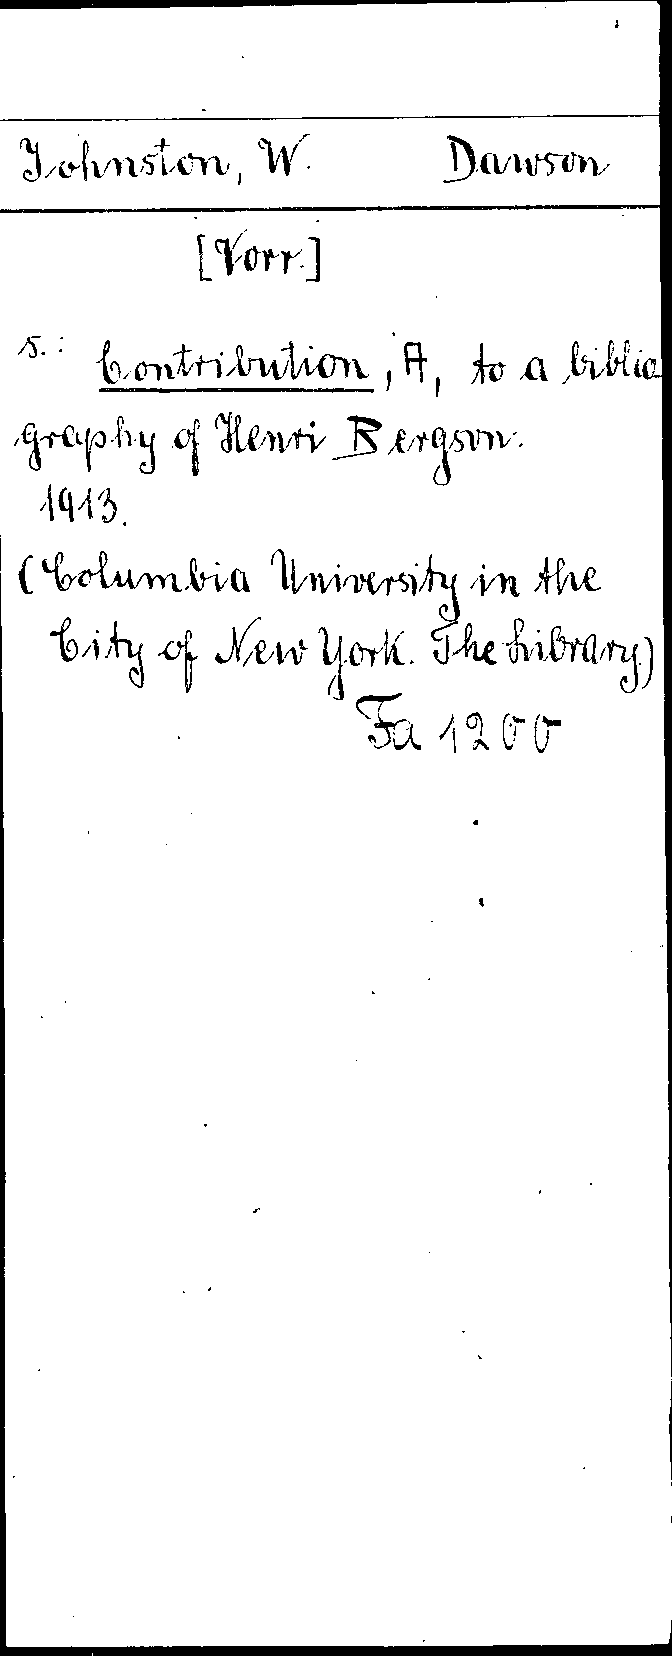 Johnston, W. Dawson
[Vorr.]
s.: Contribution, A, to a biblio
graphy of Henri Bergson.
1913.
(Columbia University in the
City of New York. The Library)
Fa 1200